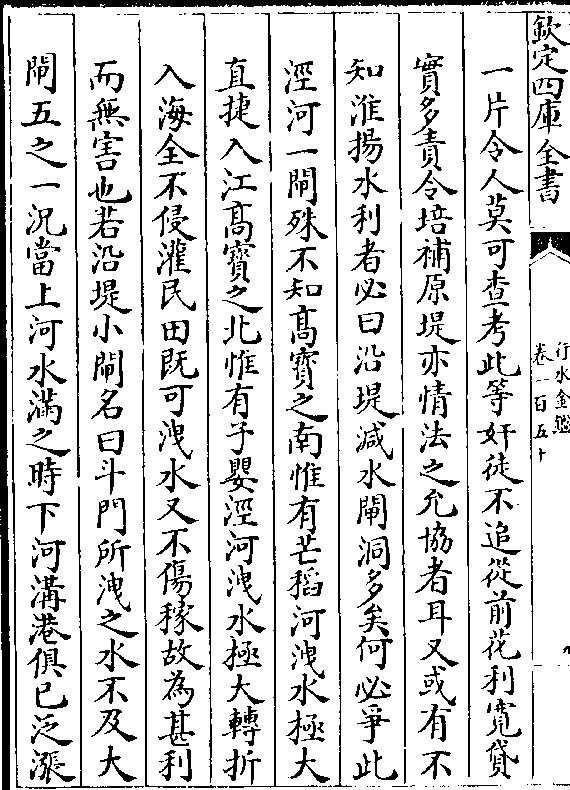 欽定四庫全書
行水金鑑
卷一百五十
九
一片令人莫可查考此等奸徒不追從前花利寬貸
實多責令培補原堤亦情法之允協者耳又或有不
知淮揚水利者必曰沿堤減水閘洞多矣何必爭此
涇河一閘殊不知髙寳之南惟有芒稻河洩水極大
直捷入江髙寳之北惟有子嬰涇河洩水極大轉折
入海全不侵灌民田既可洩水又不傷稼故為甚利
而無害也若沿堤小閘名曰斗門所洩之水不及大
閘五之一況當上河水滿之時下河溝港俱已泛漲